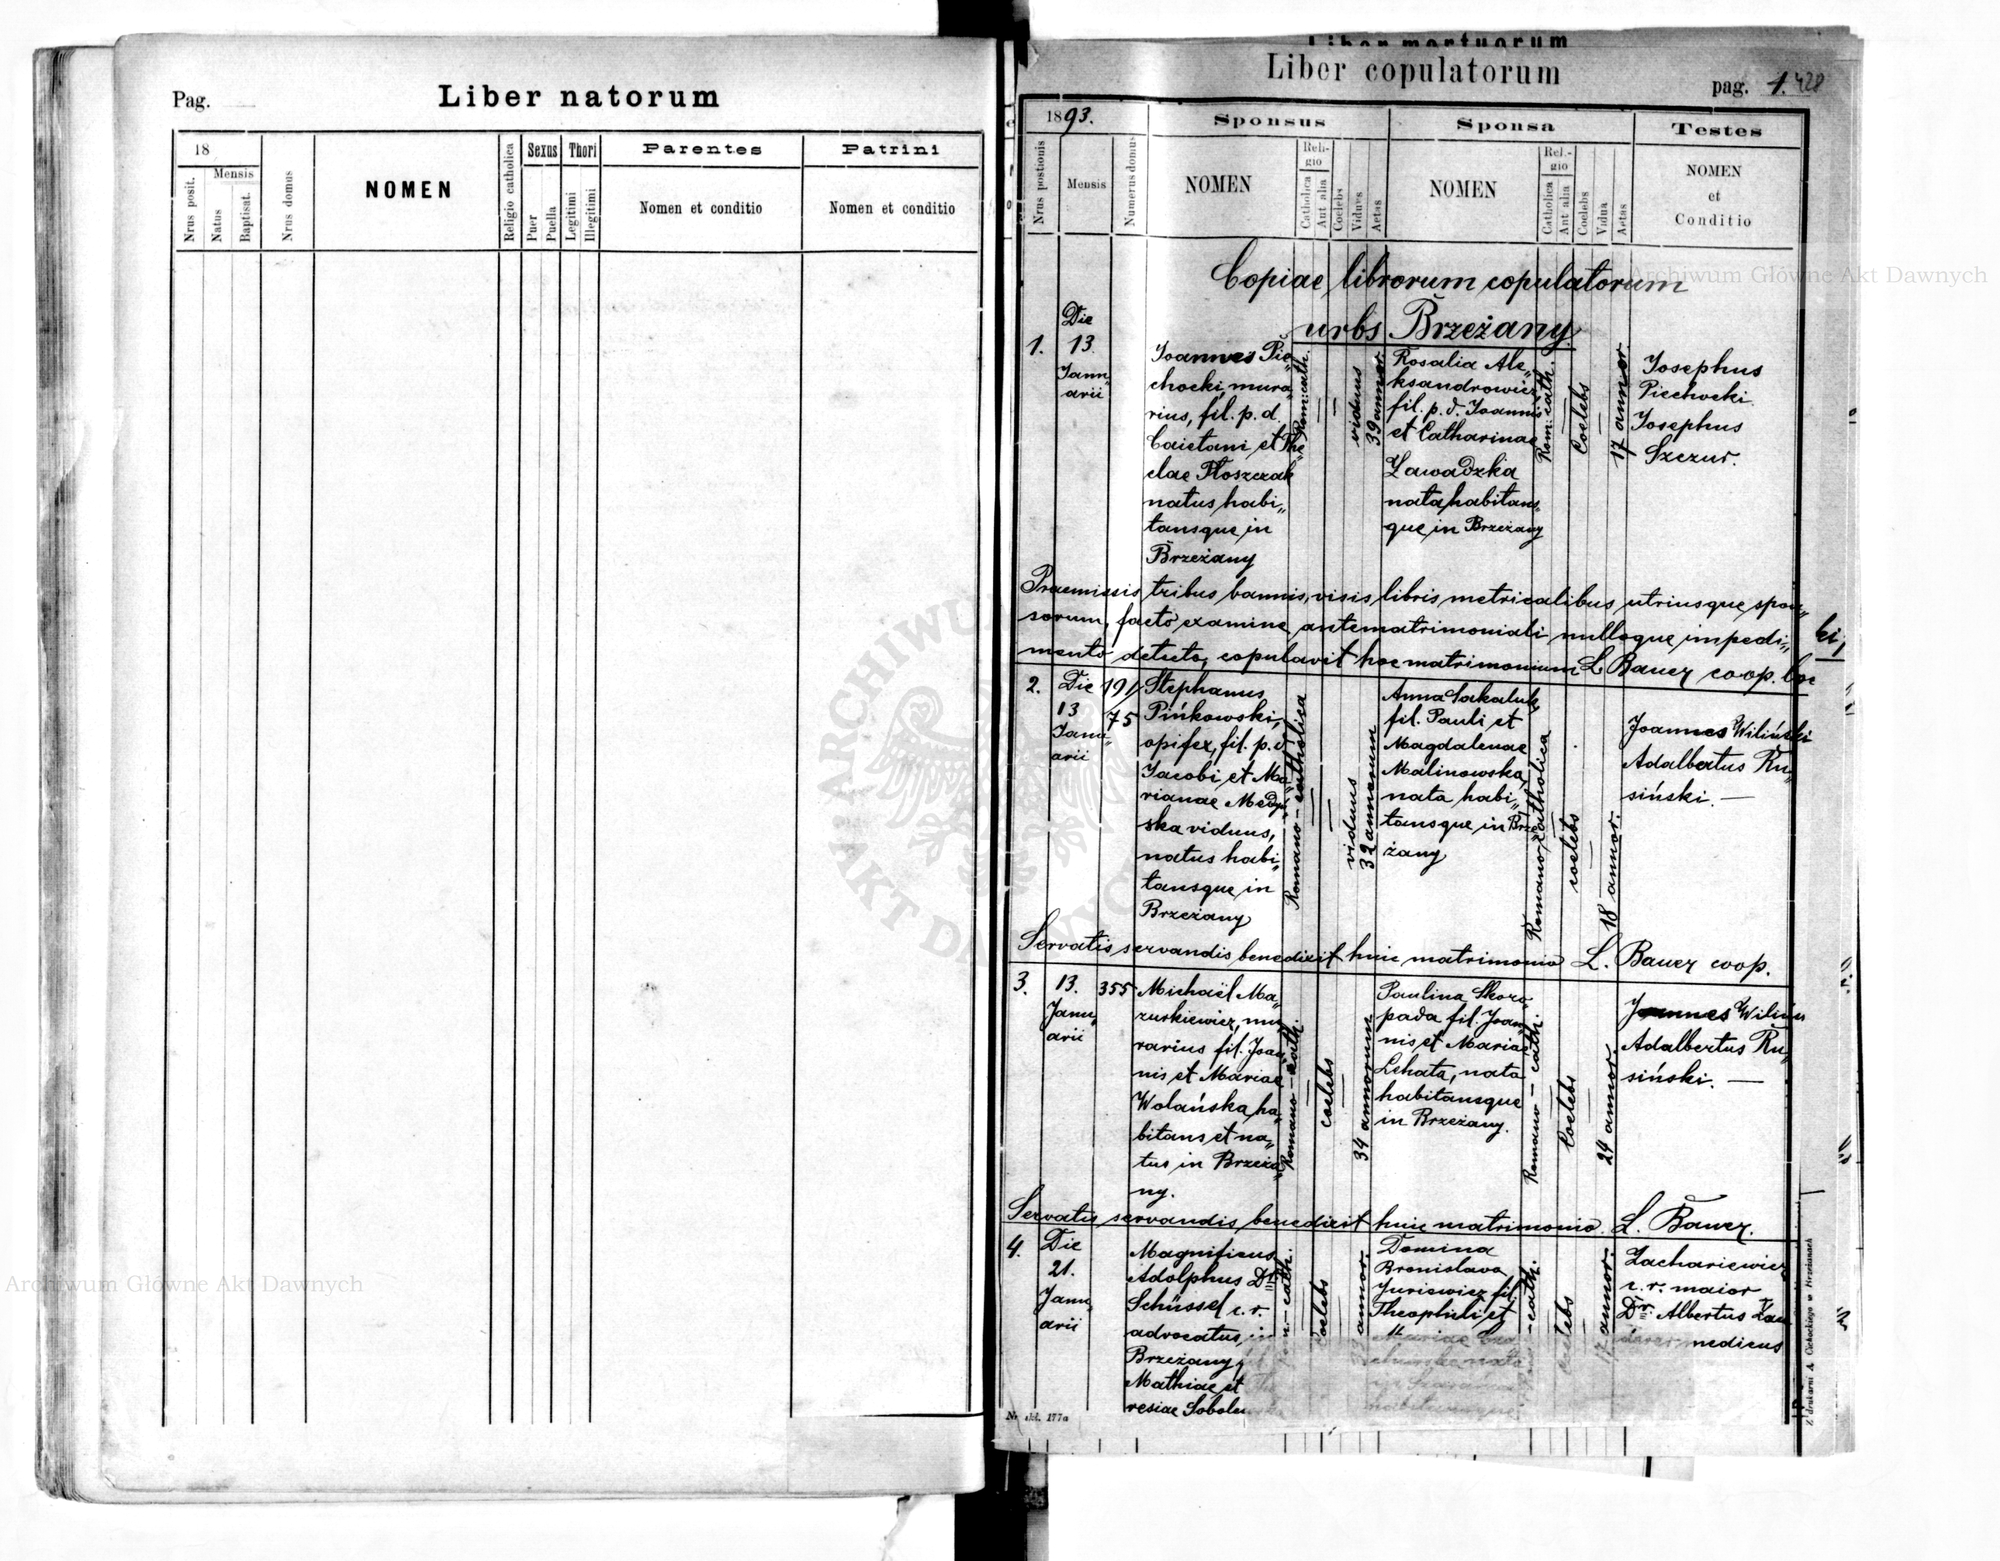 Pag.
Liber natorum
18
Nrus posit.
Mensis
Natus
Baptisat.
Nrus domus
NOMEN
Religio catholica
Sexus
Puer
Puella
Thori
Legitimi
Illegitimi
Parentes
Nomen et conditio
Patrini
Nomen et conditio
Liber mortuorum
Liber copulatorum
pag. 1. 428
1893.
Nrus positionis
Mensis
Numerus domus
Sponsus
NOMEN
Religio
Catholica
Aut alia
Coelebs
Viduus
Aetas
Sponsa
NOMEN
Religio
Catholica
Aut alia
Coelebs
Vidua
Aetas
Testes
NOMEN
et
Conditio
Copiae librorum copulatorum
urbs Brzeżany
1.
Die
13
Janu„
arii
Joannes Pie„
chocki, mura„
rius, fil. p. d.
Caietani et The„
clae Płoszczak
natus habi„
tansque in
Brzeżany
Rom: cath.
viduus
39 annor.
Rosalia Ale„
ksandrowicz
fil. p. d. Joannis
et Catharinae
Zawadzka
nata habitans„
que in Brzeżany
Rom: cath.
Coelebs
17 annor.
Josephus
Piechocki
Josephus
Szczur.
Praemissis tribus bannis, visis libris metricalibus utriusque spon„
sorum, facto examine antematrimoniali nulloque impedi„
mento detecto, copulavit hoc matrimonium L. Bauer coop.
2.
Die
13
Janu„
arii
191/
75
Stephanus
Pińkowski,
opifex, fil. p. d.
Jacobi et Ma„
rianae Medyń„
ska viduus,
natus habi„
tansque in
Brzeżany
Romano-catholica
viduus
32 annorum
Anna Sakaluk,
fil. Pauli et
Magdalenae
Malinowska,
nata habi„
tansque in Brze„
żany
Romano catholica
coelebs
18 annor.
Joannes Wiliński
Adalbertus Ru„
siński. —
Servatis servandis benedixit huic matrimonio L. Bauer coop.
3.
13.
Janu„
arii
355
Michaël Ma„
zurkiewicz, mu„
rarius fil. Joan„
nis et Mariae
Wolańska, ha„
bitans et na„
tus in Brzeża„
ny.
Romano-cath.
coelebs
34 annorum
Paulina Skoro„
pada fil. Joan„
nis et Mariae
Lehata, nata
habitansque
in Brzeżany.
Romano-cath.
Coelebs
24 annor.
Joannes Wilińs
Adalbertus Ru„
siński. —
Servatis servandis benedixit huic matrimonio L. Bauer.
4.
Die
21.
Janu„
arii
Magnificus
Adolphus Dr
Schüssel c. r.
advocatus, in
Brzeżany,
Mathiae et
resiae Sobolew
coelebs
annor.
Domina
Bronislava
Juriewicz fil.
Theophili et
Mariae
nata
habitansque
-cath.
coelebs
17 annor.
Zachariewicz
c. r. maior
Dr. Albertus
medicus
177a
Z drukarni A. Cichockiego w Brzeżanach
Archiwum Główne Akt Dawnych
Archiwum Główne Akt Dawnych
ARCHIWUM
AKT DAWNYCH